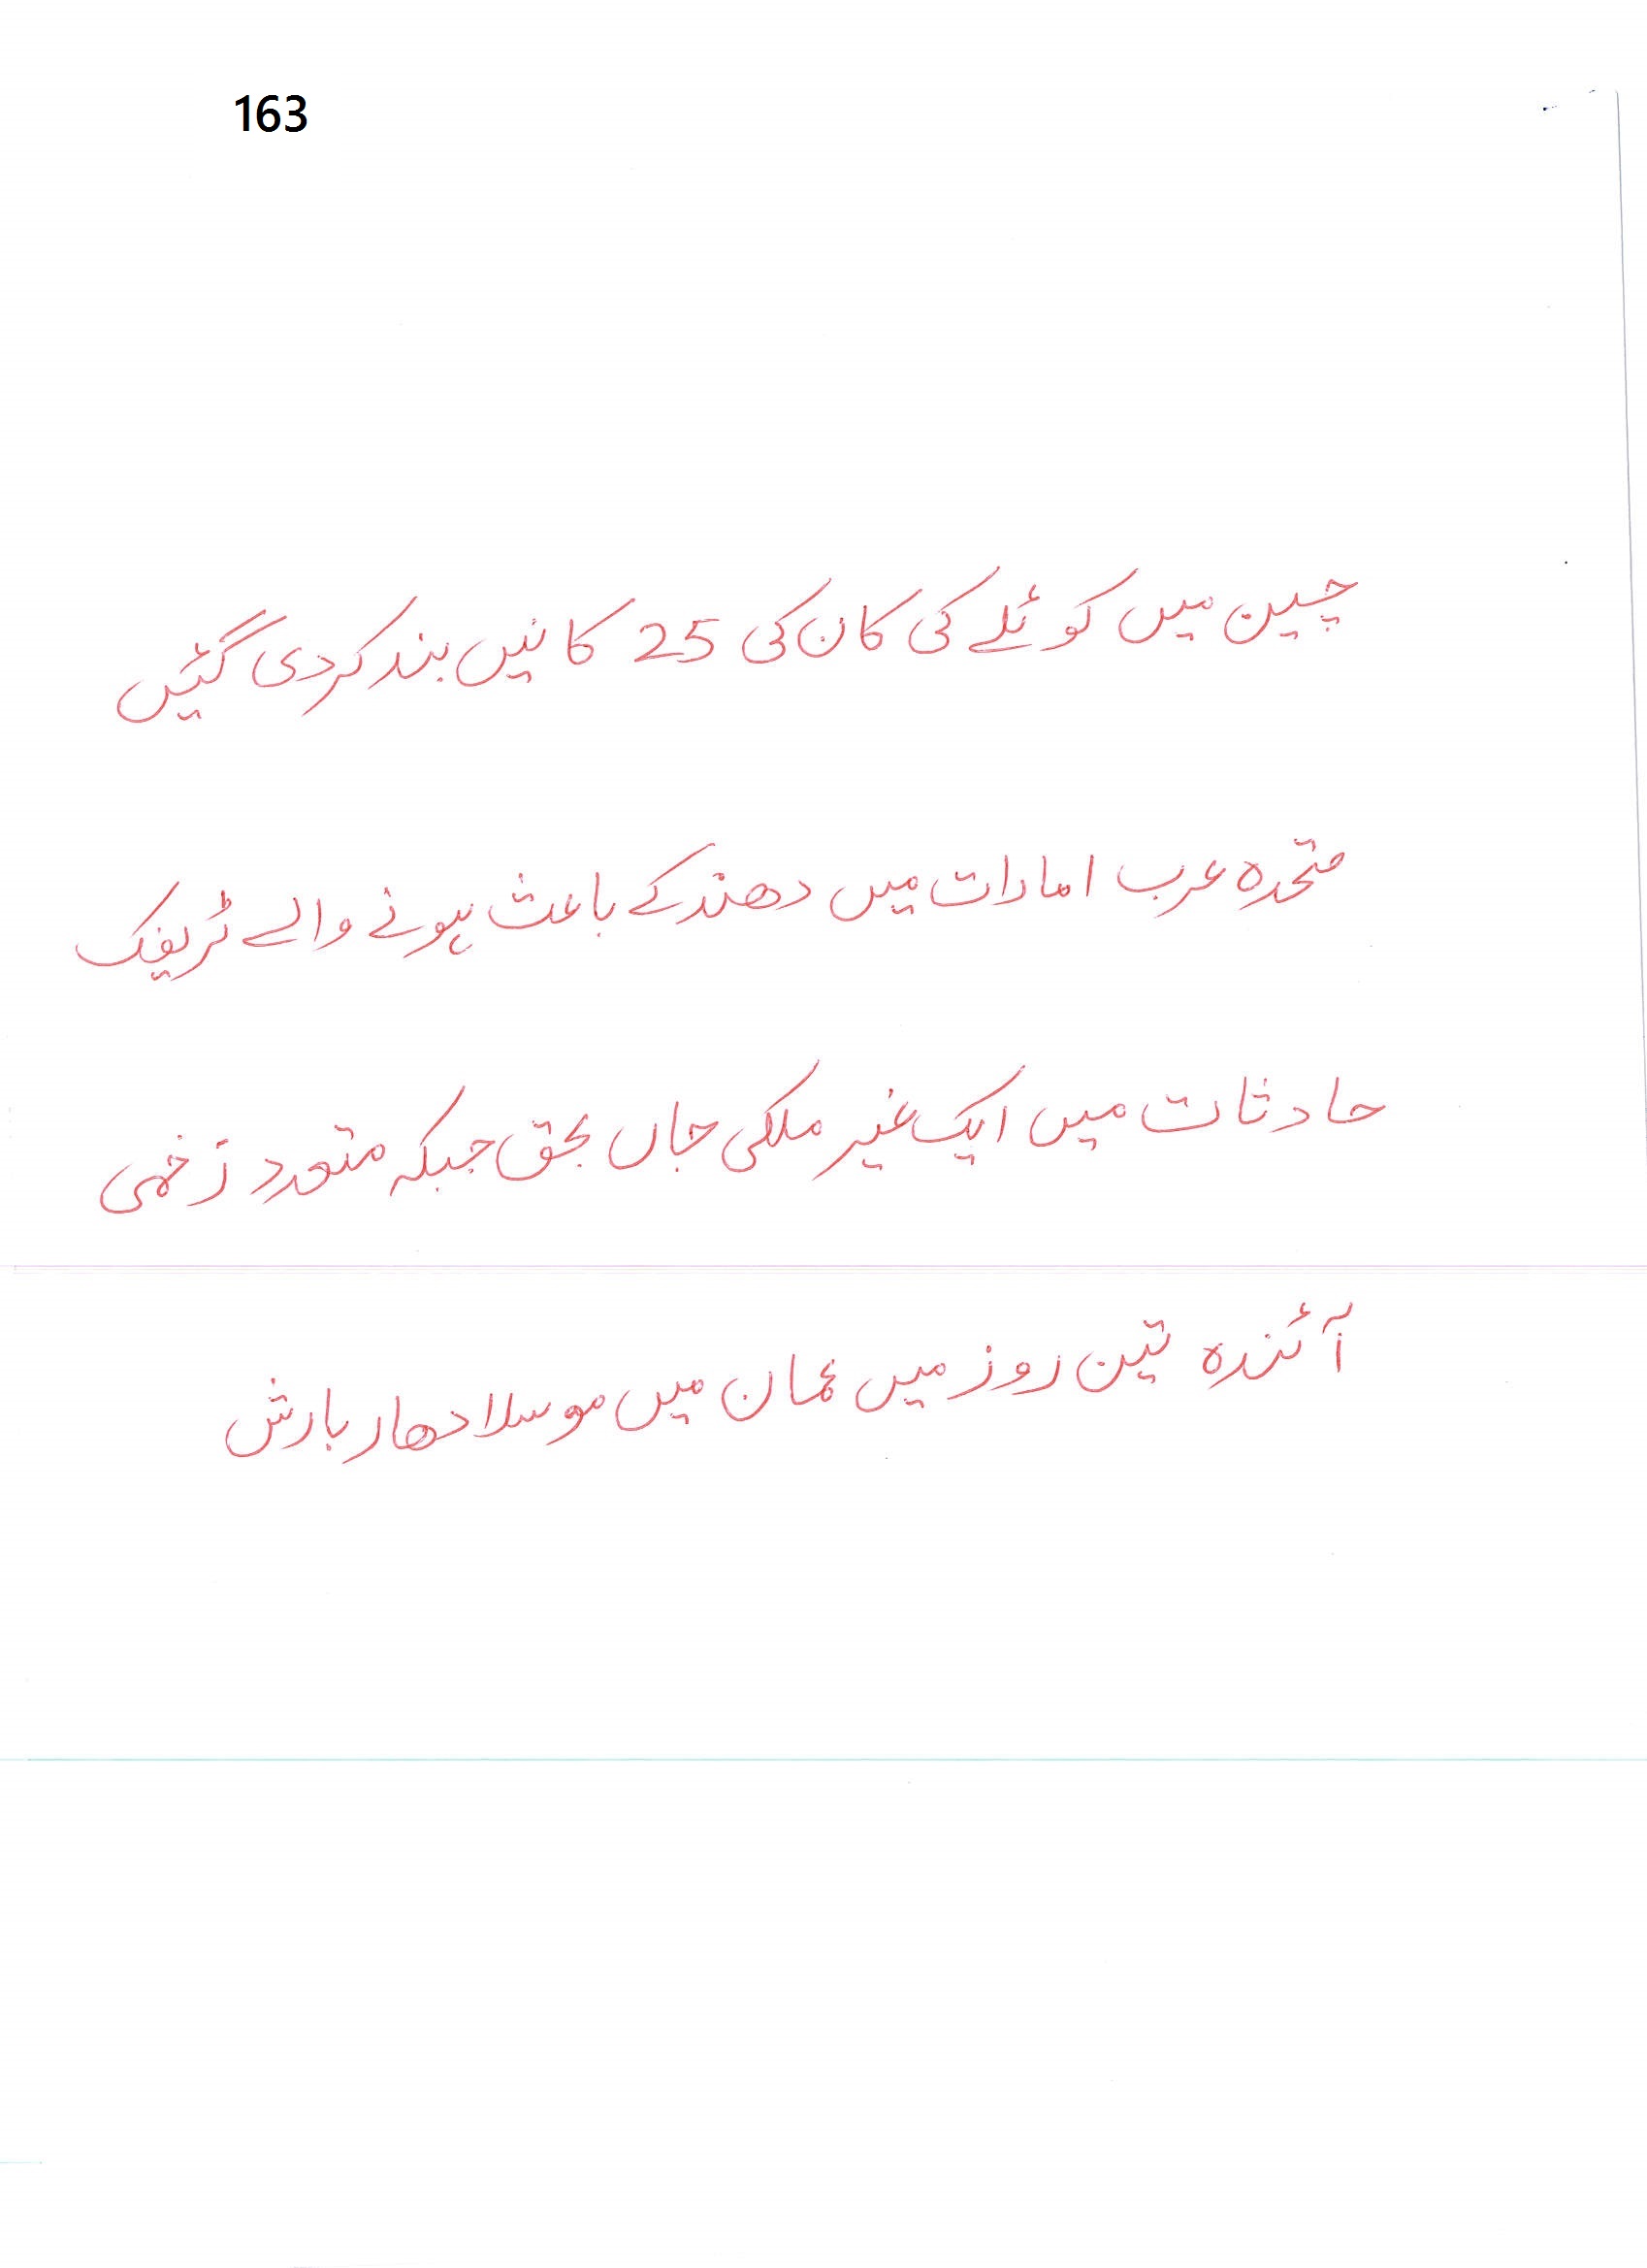 163
چین میں کوئلے کی کان کی 25 کانیں بند کردی گئیں
متحدہ عرب امارات میں دھند کے باعث ہونے والے ٹریفک
حادثات میں ایک غیر ملکی جاں بحق جبکہ متعدد زخمی
آئندہ تین روز میں عمان میں موسلادھار بارش